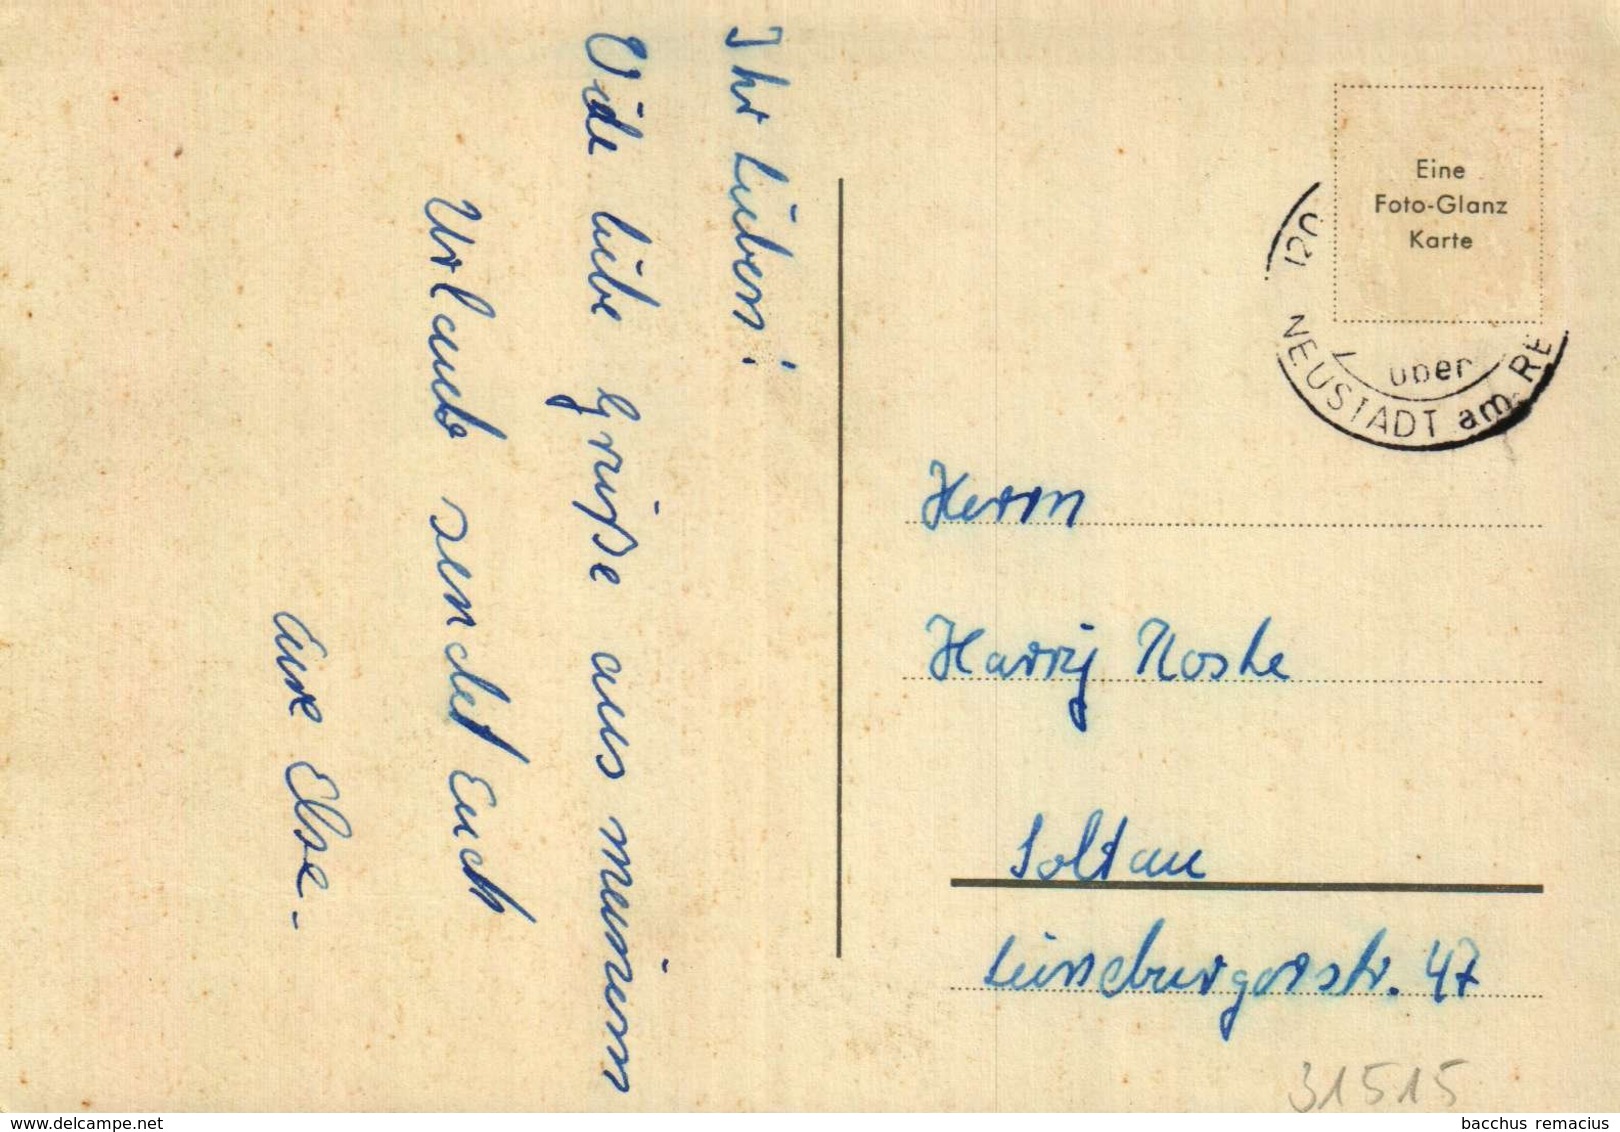 Ihr Lieben!
Viele liebe Grüße aus meinem
Urlaub sendet Euch
Eure Else.-
Eine
Foto-Glanz
Karte
über
NEUSTADT am RE
Herrn
Harry Noske
Soltau
Lüneburgerstr. 47
31515
www.delcampe.net
bacchus remacius